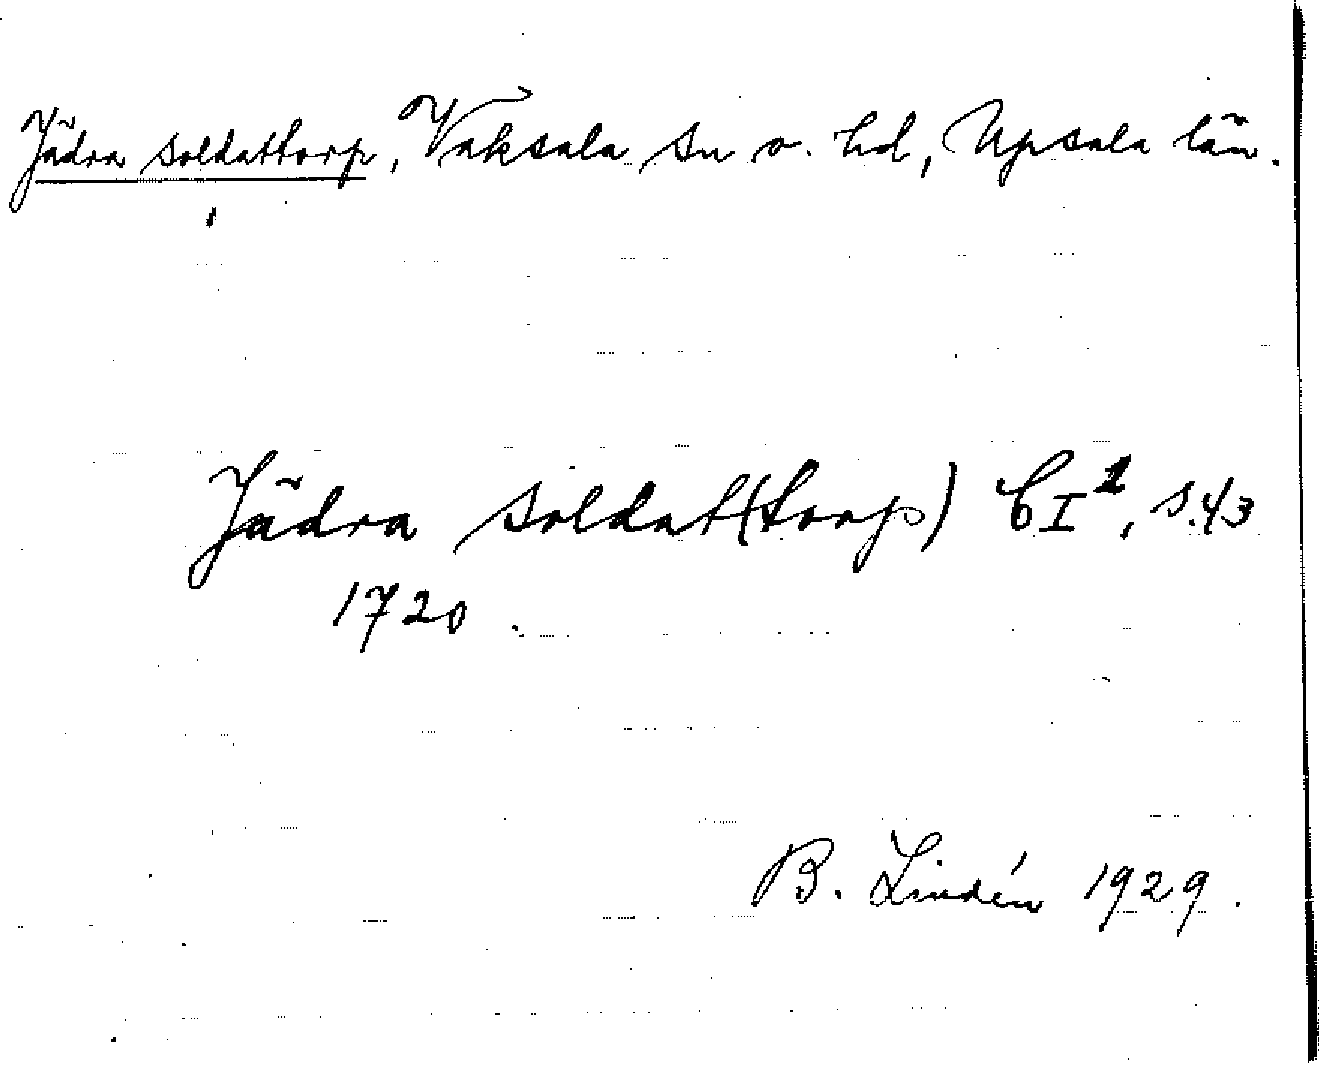 Jädra soldattorp, Vaksala sn o. hd, Upsala län.
Jädra soldat(torp) CI², s. 43
1720.
B. Lindén 1929.